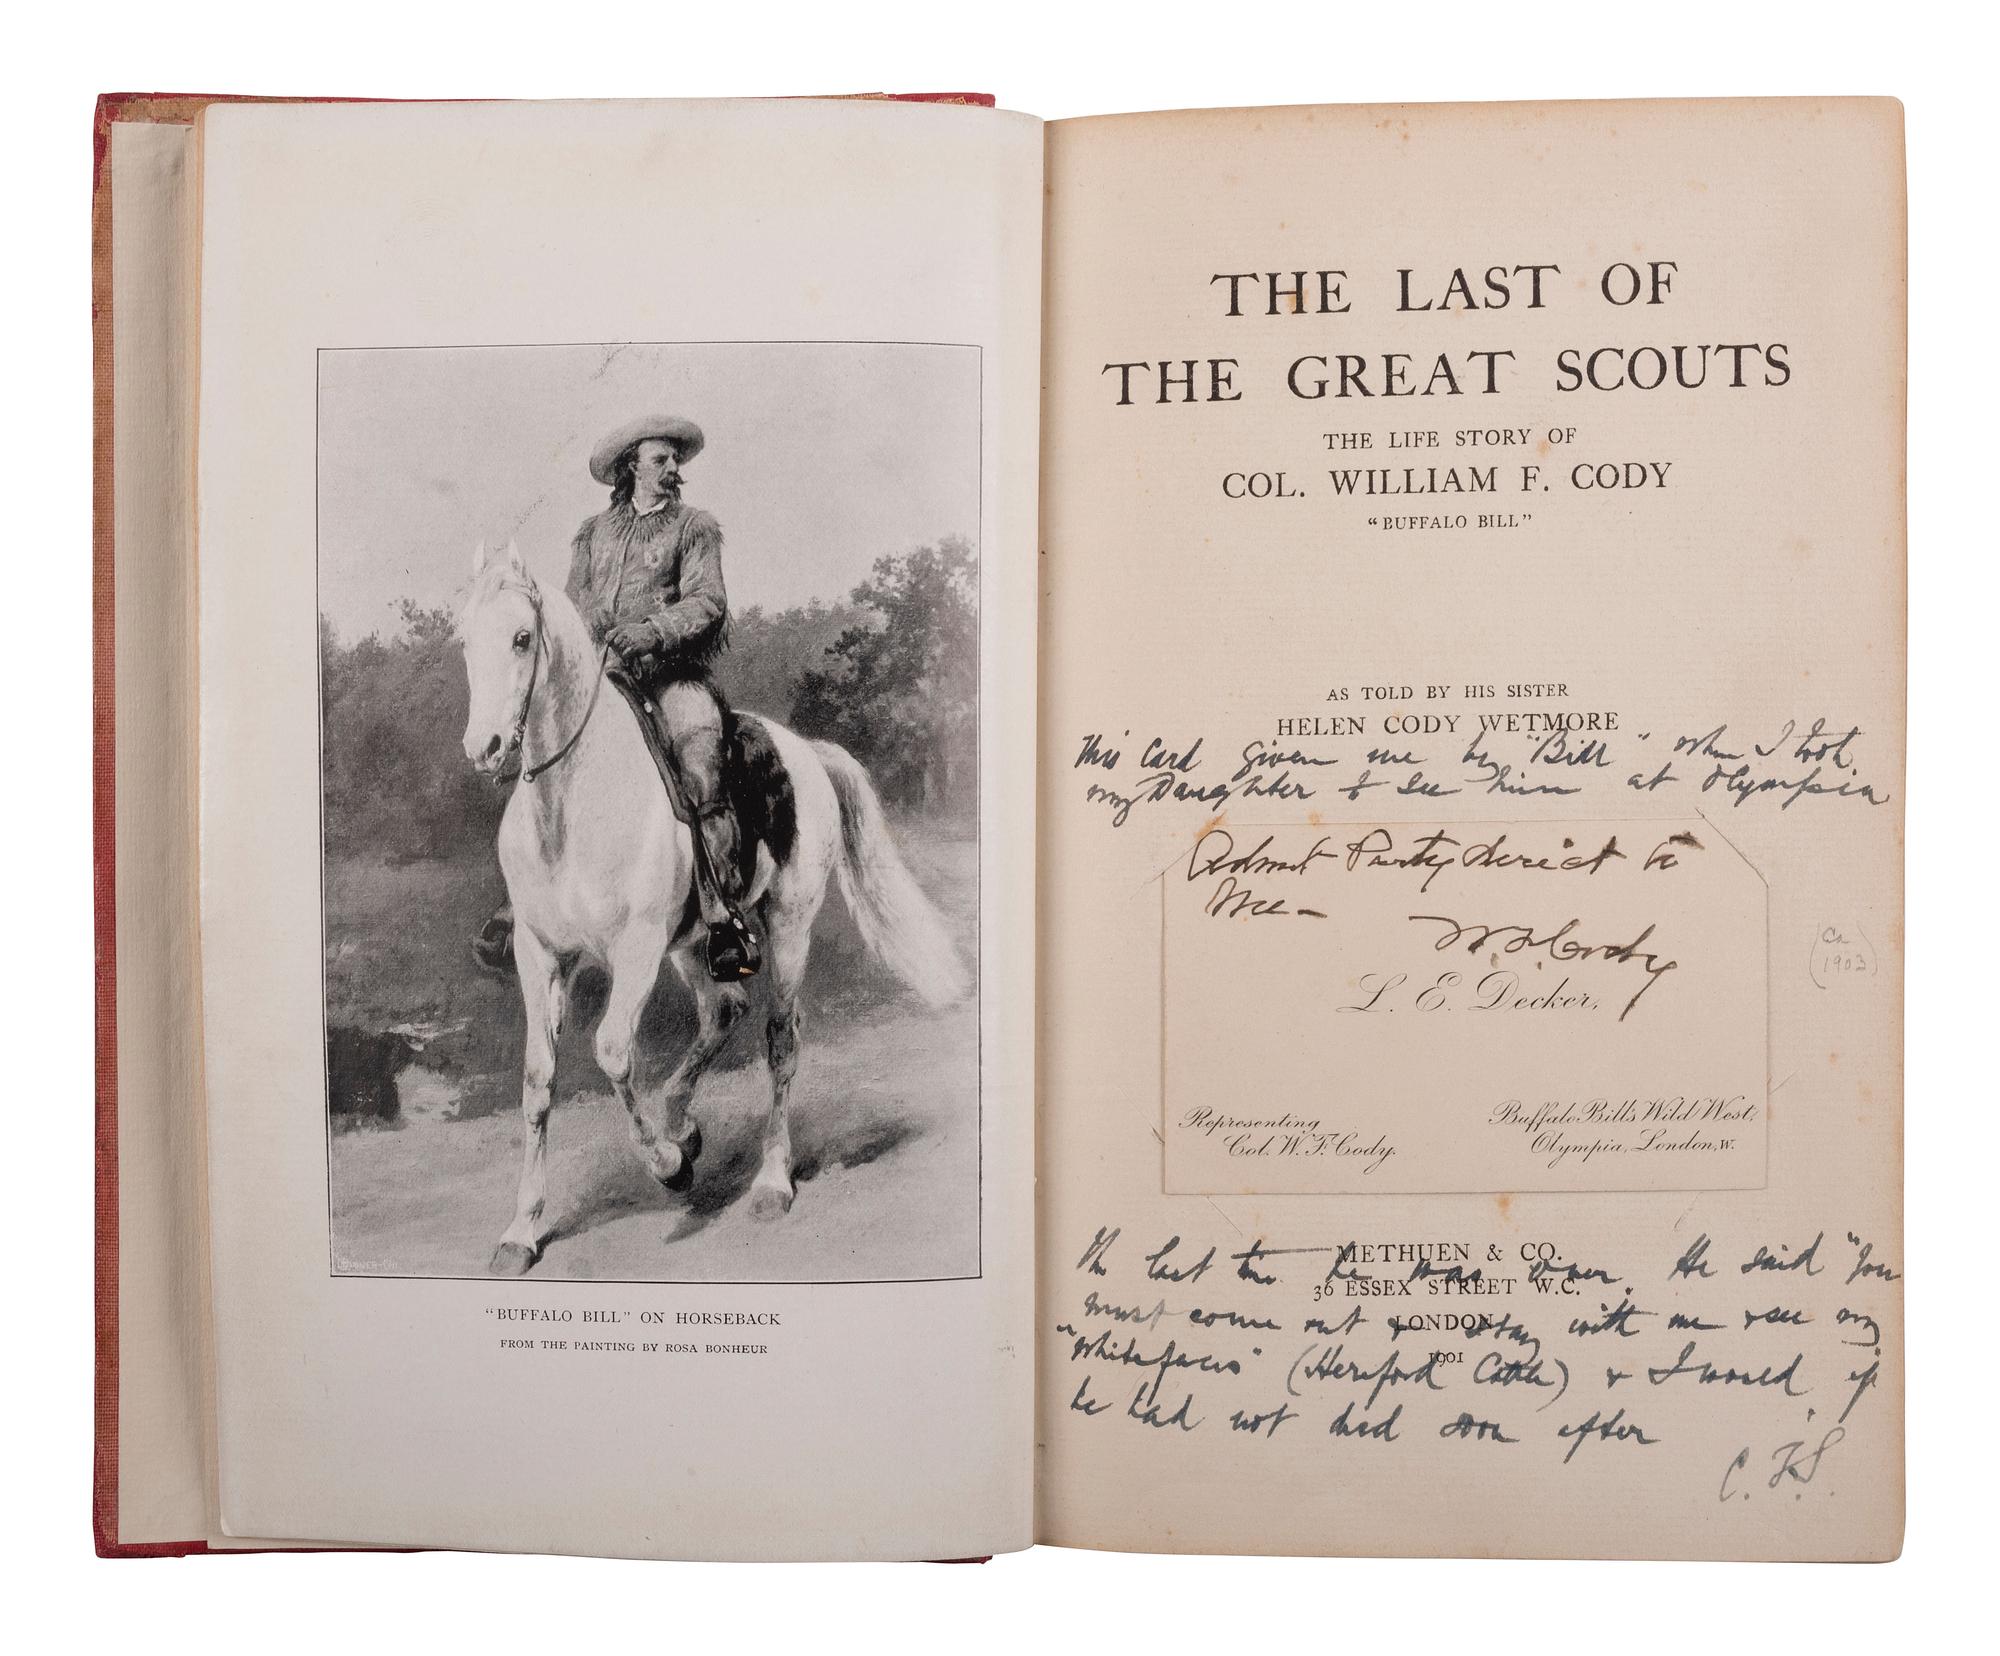 "BUFFALO BILL" ON HORSEBACK
FROM THE PAINTING BY ROSA BONHEUR
THE LAST OF
THE GREAT SCOUTS
THE LIFE STORY OF
COL. WILLIAM F. CODY
"BUFFALO BILL"
AS TOLD BY HIS SISTER
HELEN CODY WETMORE
This Card given me by "Bill" when I took
my Daughter to see him at Olympia
Admit Party direct to
Me -
W. F. Cody
(Ca
1903)
L. E. Decker,
Representing
Col. W. F. Cody.
Buffalo Bill's Wild West,
Olympia, London, W.
METHUEN & CO.
36 ESSEX STREET W.C.
LONDON
1901
The last time he was over. He said "You
must come out & stay with me & see my
"whitefaces" (Hereford Cattle) & I would if
he had not died soon after
C. F. S.